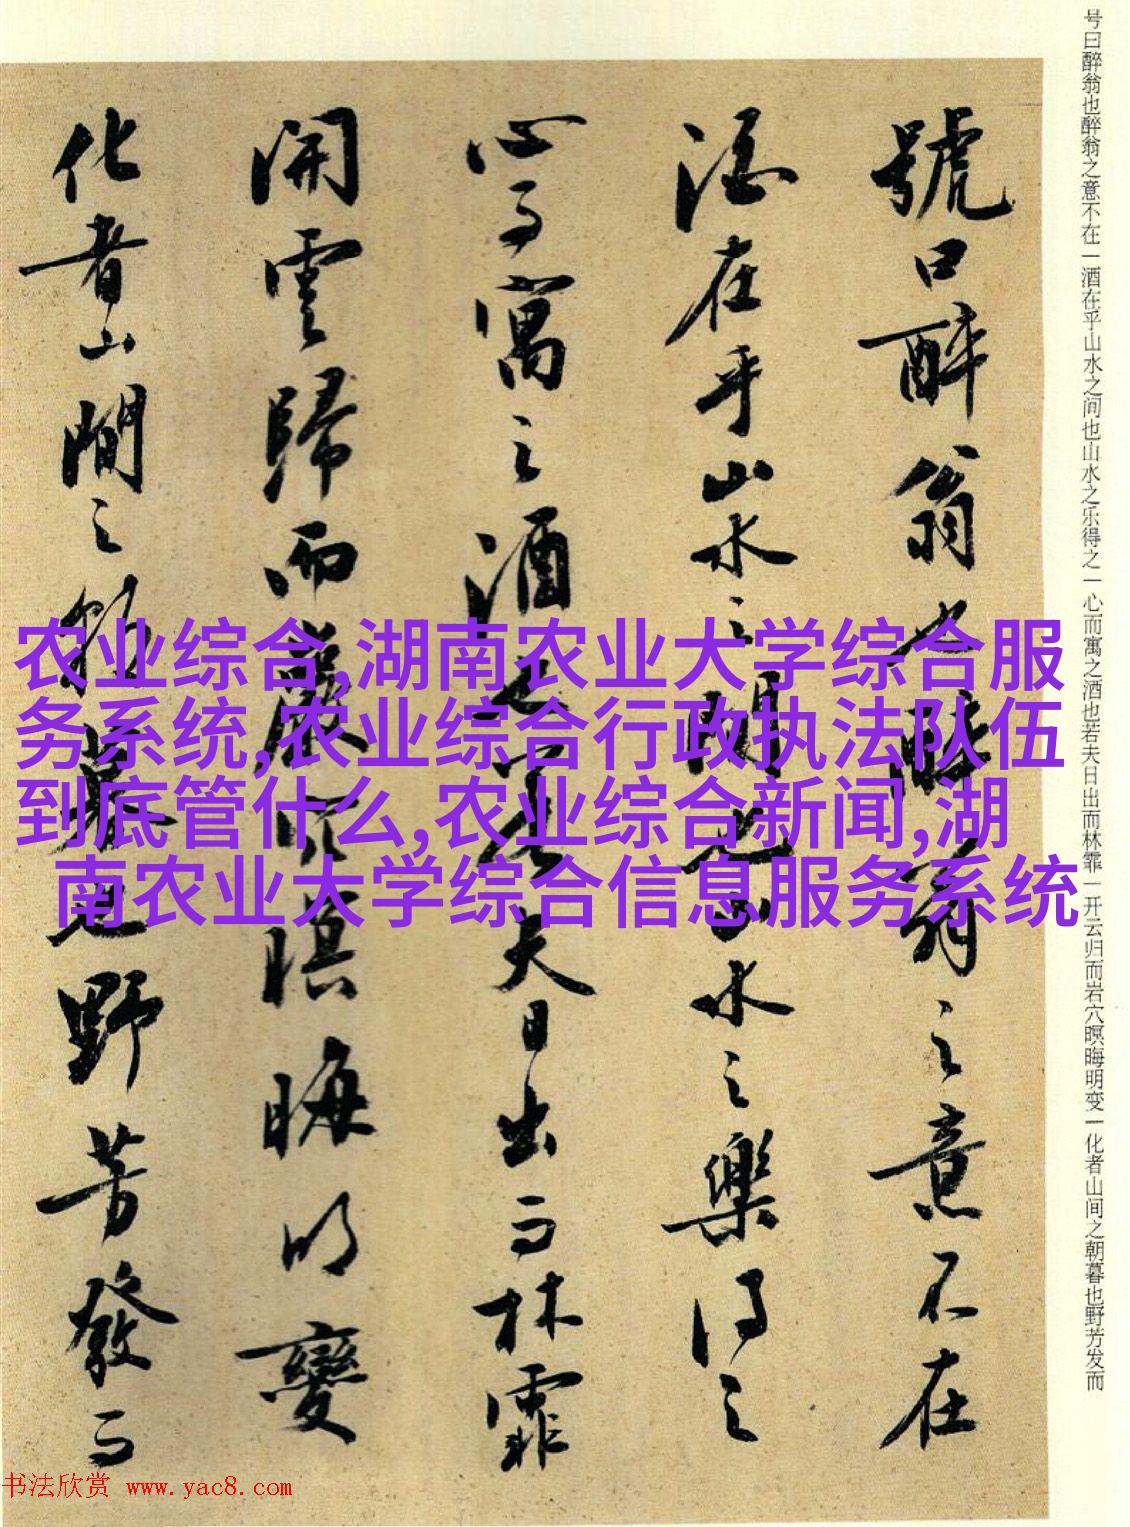 号曰醉翁也醉翁之意不在一酒在乎山水之间也山水之乐得之一心而寓之酒也若夫日出而林霏一开云归而岩穴暝晦明变一化者山间之朝暮也野芳发而
號曰醉翁也醉翁之意不在
酒在乎山水之間也山水之樂得之
心而寓之酒也若夫日出而林霏
開雲歸而巖穴暝晦明變
化者山間之朝暮也野芳發而
农业综合,湖南农业大学综合服
务系统,农业综合行政执法队伍
到底管什么,农业综合新闻,湖
南农业大学综合信息服务系统
书法欣赏 www.yac8.com